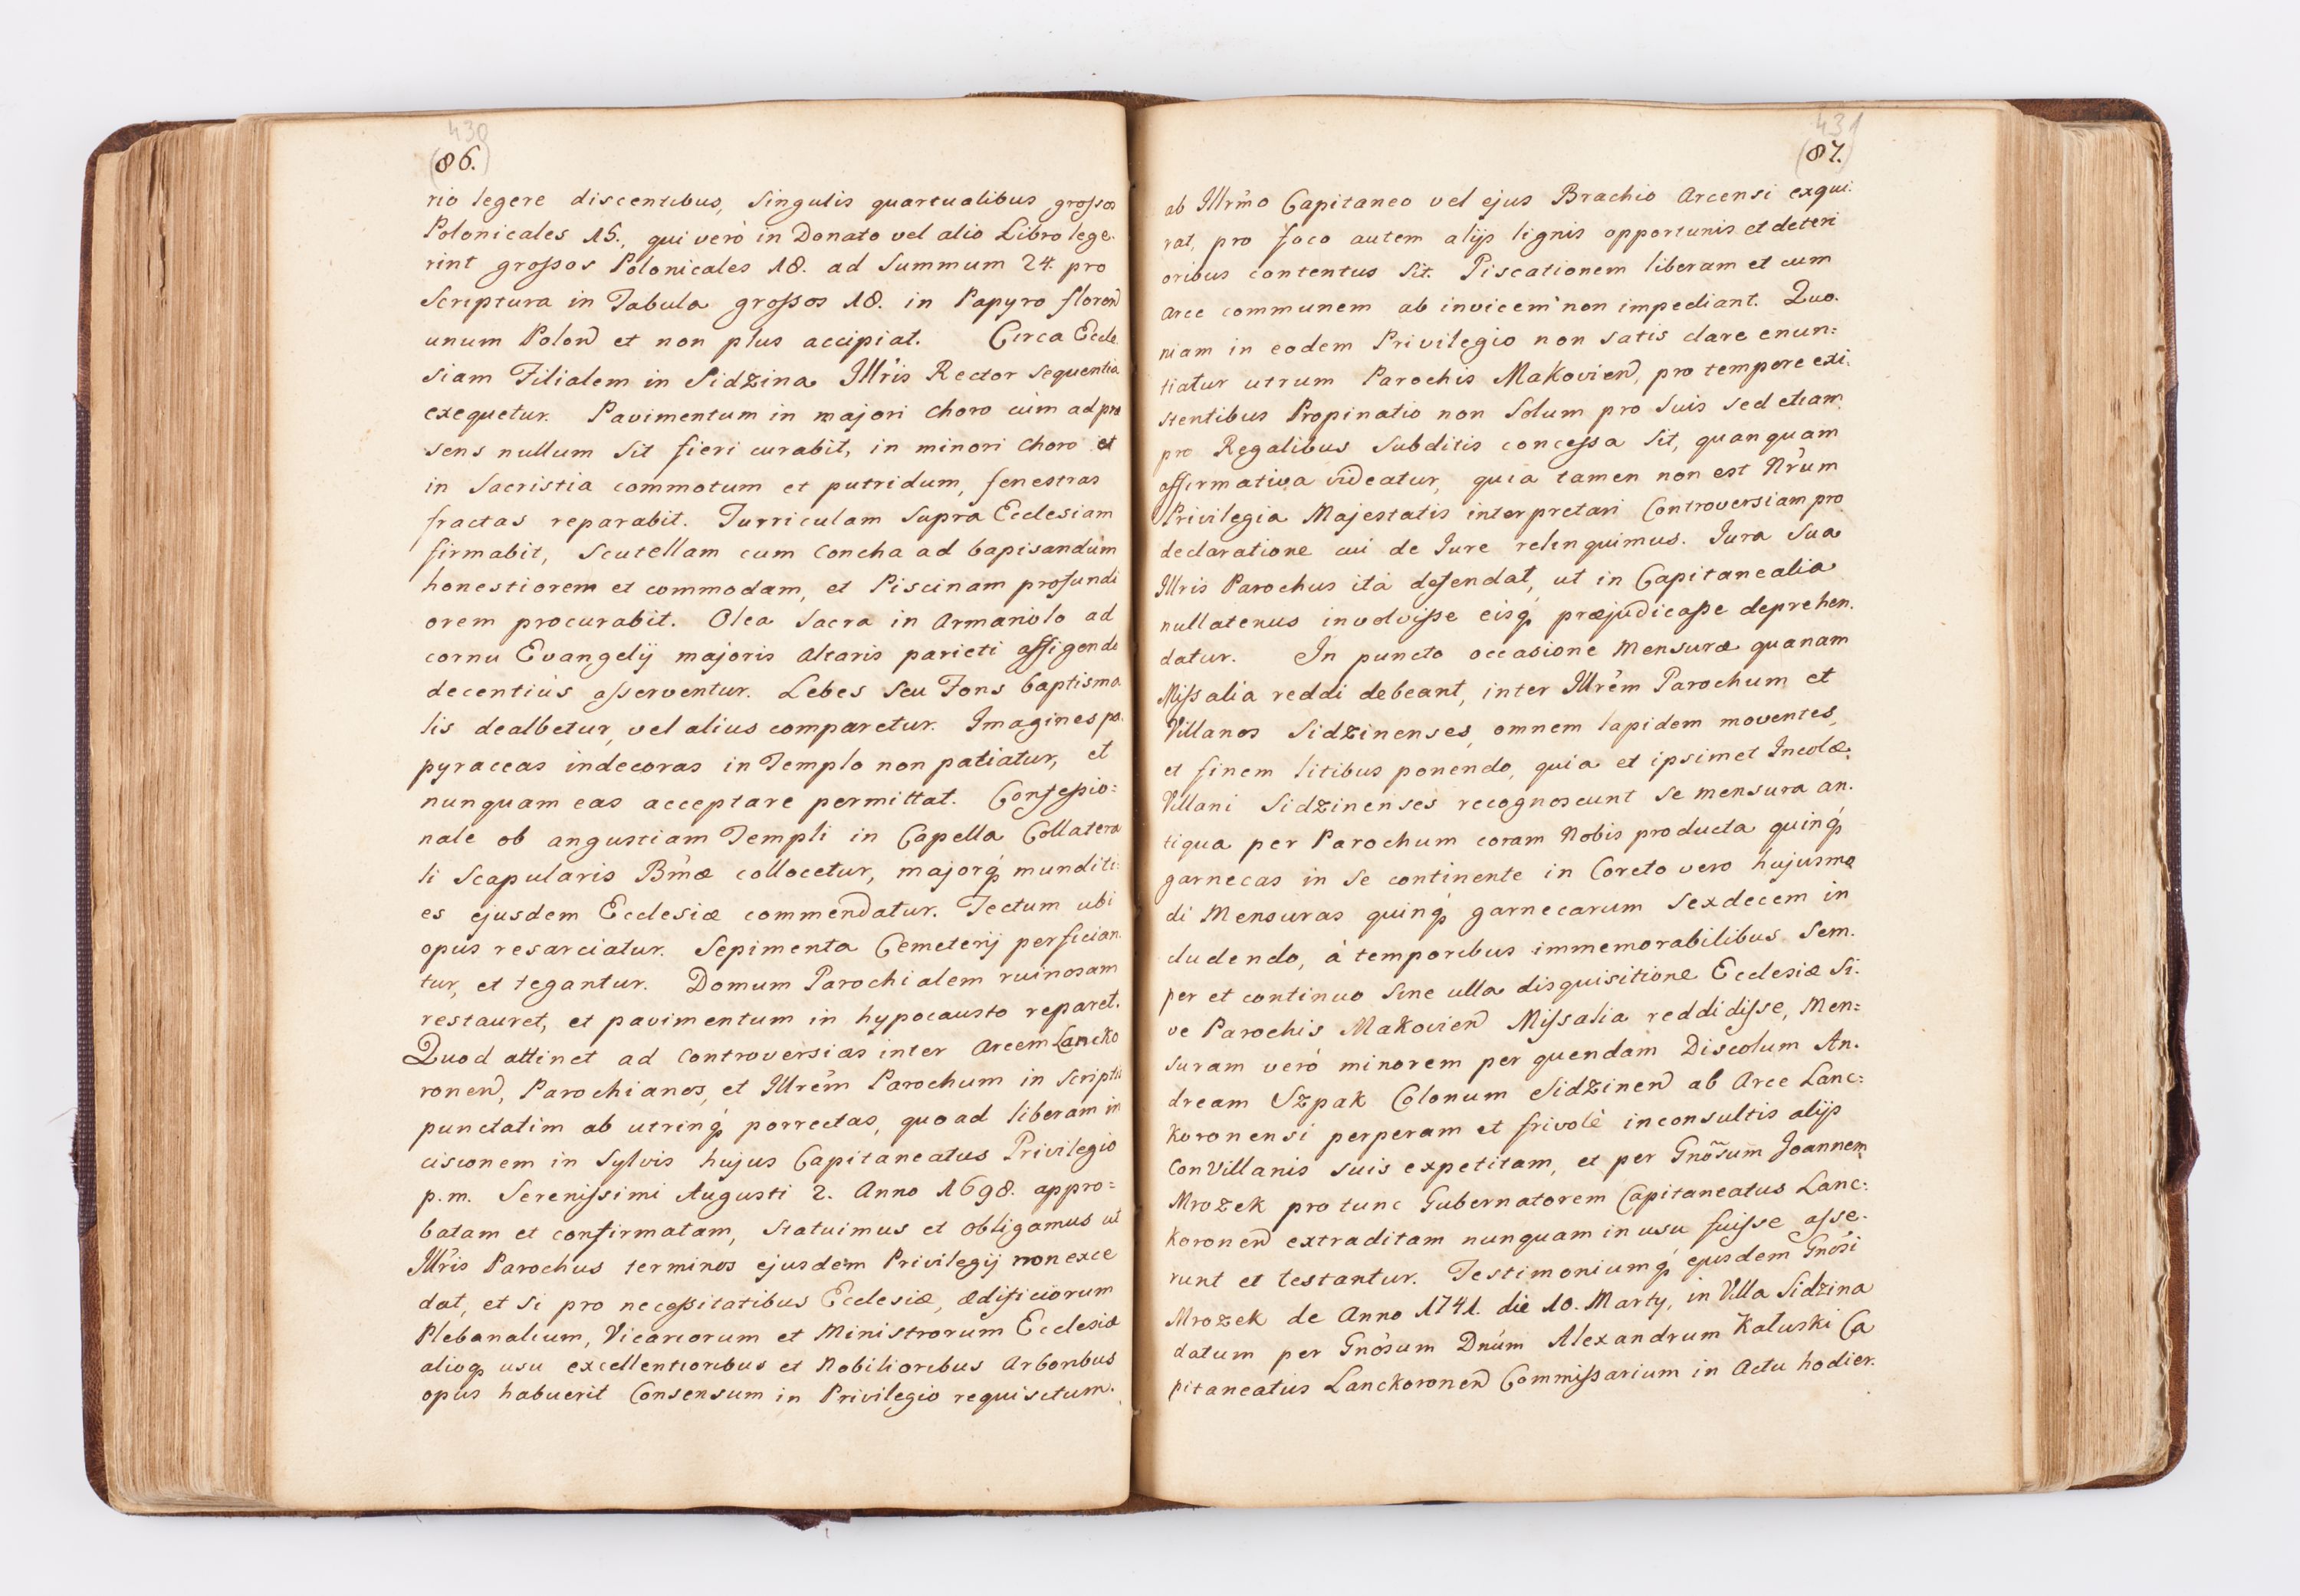 430
(86.)
rio legere discentibus, Singulis quartualibus grossos
Polonicales 15., qui verò in Donato vel alio Libro lege-
rint grossos Polonicales 18. ad Summum 24. pro
Scriptura in Tabula grossos 18. in Papyro floren̄
unum Polon̄ et non plus accipiat. Circa Eccle
siam Filialem in Sidzina Illr̃is Rector sequentia
exequetur. Pavimentum in majori choro cùm ad præ
sens nullum sit fieri curabit, in minori choro et
in Sacristia commotum et putridum, fenestras
fractas reparabit. Turriculam supra Ecclesiam
firmabit, Scutellam cum Concha ad bapisandum
honestiorem et commodam, et Piscinam profundi
orem procurabit. Olea Sacra in Armariolo ad
cornu Evangelij majoris altaris parieti affigendo
decentiùs asserventur. Lebes seu Fons baptisma
lis dealbetur, vel alius comparetur. Imagines pa-
pyraceas indecoras in Templo non patiatur, et
nunquam eas acceptare permittat. Confessio=
nale ob angustiam Templi in Capella Collatera
li Scapularis Bm̃æ collocetur, majorq́ munditi
es ejusdem Ecclesiæ commendatur. Tectum ubi
opus resarciatur. Sepimenta Cemeterij perfician
tur, et tegantur. Domum Parochialem ruinosam
restauret, et pavimentum in hypocausto reparet.
Quod attinet ad Controversias inter Arcem Lancko
ronen̄, Parochianos, et Illrẽm Parochum in scriptis
punctatim ab utrinq́ porrectas, quoad liberam in
cisionem in Sylvis hujus Capitaneatus Privilegio
p.m. Serenissimi Augusti 2. Anno 1698. appro=
batam et confirmatam, statuimus et obligamus ut
Illr̃is Parochus terminos ejusdem Privilegij non exce
dat, et si pro necessitatibus Ecclesiæ, ædificiorum
Plebanalium, Vicariorum et Ministrorum Ecclesiæ
alioq́ usu excellentioribus et Nobilioribus Arboribus
opus habuerit Consensum in Privilegio requisitum.
431
(87.)
ab Illrm̃o Capitaneo vel ejus Brachio Arcensi exqui-
rat, pro foco autem alijs lignis opportunis et deteri
oribus contentus sit. Piscationem liberam et cum
Arce communem ab invicem non impediant. Quo-
niam in eodem Privilegio non satis clare enun=
tiatur utrum Parochis Makovien̄, pro tempore exi-
stentibus Propinatio non solum pro suis sed etiam
pro Regalibus Subditis concessa sit, quanquam
affirmativa videatur, quia tamen non est Nr̃um
Privilegia Majestatis interpretari Controversiam pro
declaratione cui de Jure relinquimus. Jura sua
Illris Parochus ità defendat, ut in Capitanealia
nullatenus involvisse eisq́ præjudicasse deprehen-
datur. In puncto occasione Mensuræ quanam
Missalia reddi debeant, inter Illrẽm Parochum et
Villanos Sidzinenses, omnem lapidem moventes,
et finem litibus ponendo, quia et ipsimet Incolæ,
Villani Sidzinenses recognoscunt se mensura an-
tiqua per Parochum coram Nobis producta quinq́
garnecas in se continente in Coreto vero hujusmo
di Mensuras quinq́ garnecarum Sexdecem in
cludendo, à temporibus immemorabilibus sem-
per et continuo sine ulla disquisitione Ecclesiæ Si-
ve Parochis Makovien̄ Missalia reddidisse, Men=
suram verò minorem per quendam Discolum An-
dream Szpak Colonum Sidzinen̄ ab Arce Lanc=
koronensi perperam et frivolè inconsultis alijs
ConVillanis suis expetitam, et per Gnõsum Joannem
Mrozek pro tunc Gubernatorem Capitaneatus Lanc=
koronen̄ extraditam nunquam in usu fuisse asse-
runt et testantur. Testimoniumq́ ejusdem Gnõsi
Mrozek de Anno 1741. die 10. Marty, in Villa Sidzina
datum per Gnõsum Dnũm Alexandrum Kałuski Ca
pitaneatus Lanckoronen̄ Commissarium in Actu hodier-